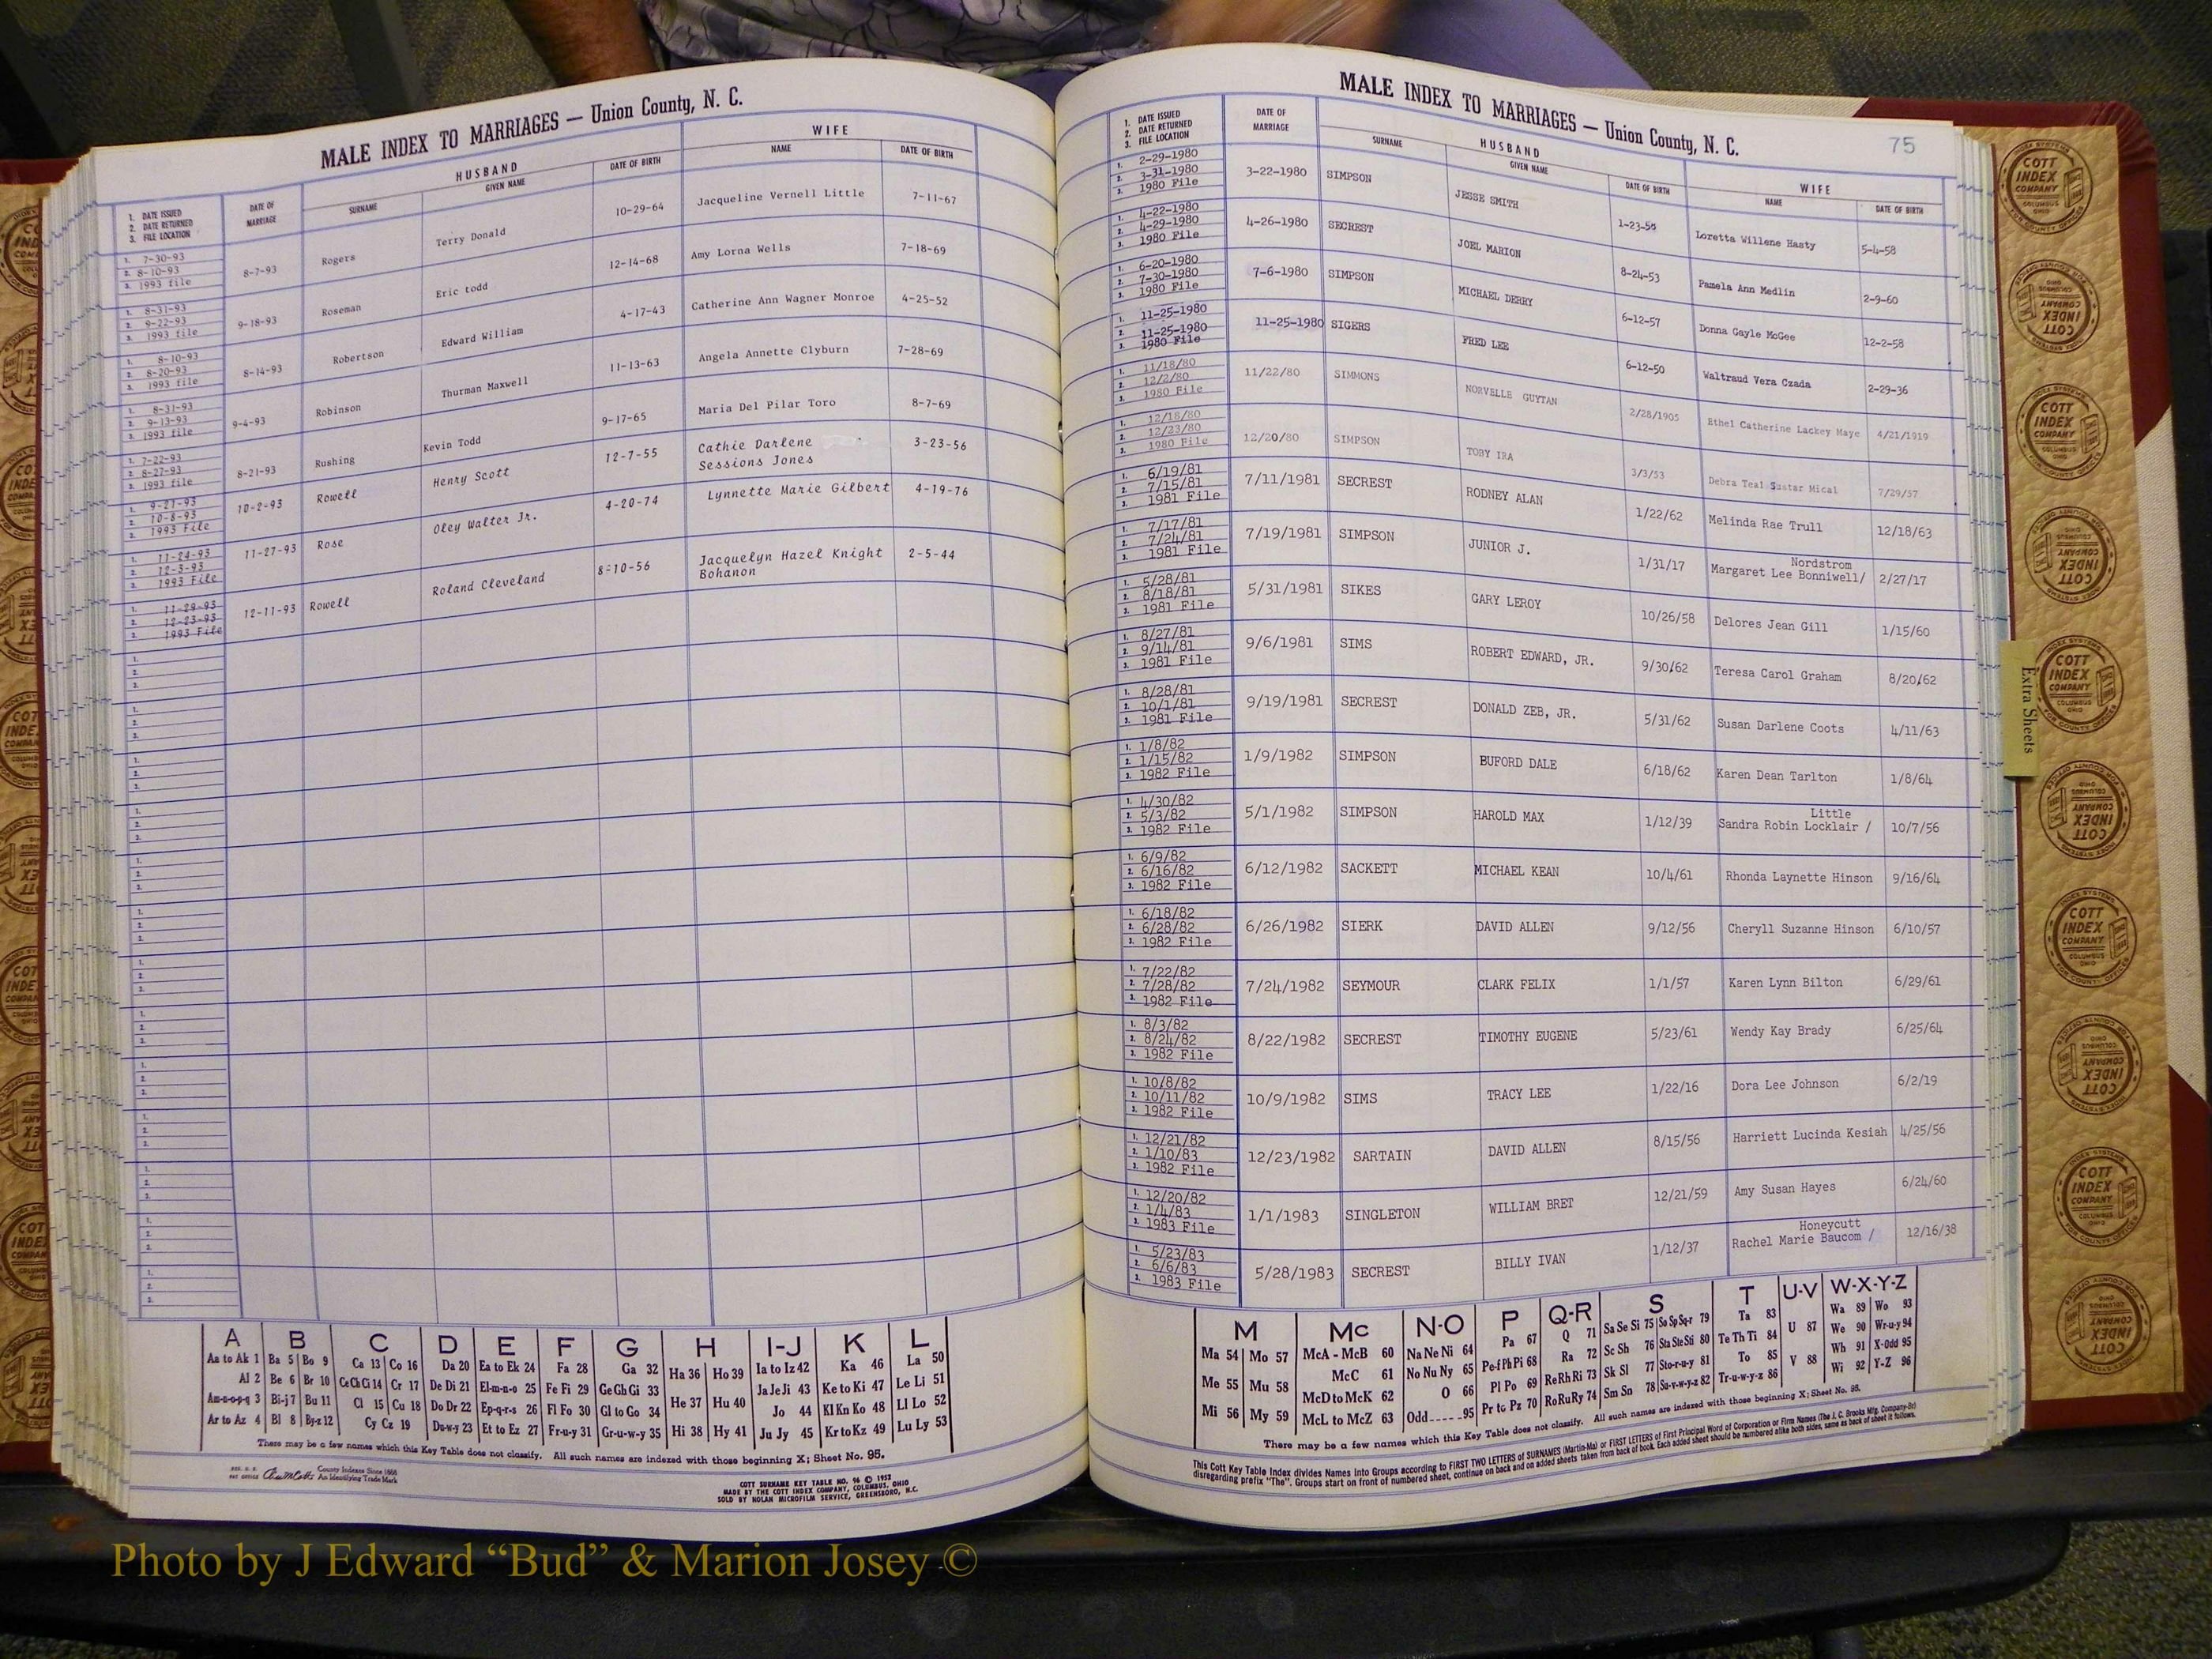 MALE INDEX TO MARRIAGES — Union County, N. C.
HUSBAND WIFE
1. DATE ISSUED
2. DATE RETURNED
3. FILE LOCATION
DATE OF MARRIAGE SURNAME GIVEN NAME DATE OF BIRTH NAME DATE OF BIRTH
1. 7-30-93
2. 8-10-93
3. 1993 file
8-7-93 Rogers Terry Donald 10-29-64 Jacqueline Vernell Little 7-11-67
1. 8-31-93
2. 9-22-93
3. 1993 file
9-18-93 Roseman Eric todd 12-14-68 Amy Lorna Wells 7-18-69
1. 8-10-93
2. 8-20-93
3. 1993 file
8-14-93 Robertson Edward William 4-17-43 Catherine Ann Wagner Monroe 4-25-52
1. 8-31-93
2. 9-13-93
3. 1993 file
9-4-93 Robinson Thurman Maxwell 11-13-63 Angela Annette Clyburn 7-28-69
1. 7-22-93
2. 8-27-93
3. 1993 file
8-21-93 Rushing Kevin Todd 9-17-65 Maria Del Pilar Toro 8-7-69
1. 9-21-93
2. 10-8-93
3. 1993 File
10-2-93 Rowell Henry Scott 12-7-55 Cathie Darlene Sessions Jones 3-23-56
1. 11-24-93
2. 12-3-93
3. 1993 File
11-27-93 Rose Oley Walter Jr. 4-20-74 Lynnette Marie Gilbert 4-19-76
1. 11-29-93
2. 12-23-93
3. 1993 File
12-11-93 Rowell Roland Cleveland 8-10-56 Jacquelyn Hazel Knight Bohanon 2-5-44
A B C D E F G H I-J K L
Aa to Ak 1 Ba 5 Bo 9 Ca 13 Co 16 Da 20 Ea to Ek 24 Fa 28 Ga 32 Ha 36 Ho 39 Ia to Iz 42 Ka 46 La 50
Al 2 Be 6 Br 10 Ce Ch Ci 14 Cr 17 De Di 21 El-m-n-o 25 Fe Fi 29 Ge Gh Gi 33 He 37 Hu 40 Ja Je Ji 43 Ke to Ki 47 Le Li 51
Am-n-o-p-q 3 Bi-j 7 Bu 11 Cl 15 Cu 18 Do Dr 22 Ep-q-r-s 26 Fl Fo 30 Gl to Go 34 Jo 44 Kl Kn Ko 48 Ll Lo 52
Ar to Az 4 Bl 8 By-z 12 Cy Cz 19 Du-w-y 23 Et to Ez 27 Fr-u-y 31 Gr-u-w-y 35 Hi 38 Hy 41 Ju Jy 45 Kr to Kz 49 Lu Ly 53
There may be a few names which this Key Table does not classify. All such names are indexed with those beginning X; Sheet No. 95.
County Indexes Since 1888
An Identifying Trade Mark
COTT SURNAME KEY TABLE NO. 96 © 1952
MADE BY THE COTT INDEX COMPANY, COLUMBUS, OHIO
SOLD BY NOLAN MICROFILM SERVICE, GREENSBORO, N.C.
MALE INDEX TO MARRIAGES — Union County, N. C.
75
HUSBAND WIFE
1. DATE ISSUED
2. DATE RETURNED
3. FILE LOCATION
DATE OF MARRIAGE SURNAME GIVEN NAME DATE OF BIRTH NAME DATE OF BIRTH
1. 2-29-1980
2. 3-31-1980
3. 1980 File
3-22-1980 SIMPSON JESSE SMITH 1-23-56 Loretta Willene Hasty 5-4-58
1. 4-22-1980
2. 4-29-1980
3. 1980 File
4-26-1980 SECREST JOEL MARION 8-24-53 Pamela Ann Medlin 2-9-60
1. 6-20-1980
2. 7-30-1980
3. 1980 File
7-6-1980 SIMPSON MICHAEL DERRY 6-12-57 Donna Gayle McGee 12-2-58
1. 11-25-1980
2. 11-25-1980
3. 1980 File
11-25-1980 SIGERS FRED LEE 6-12-50 Waltraud Vera Czada 2-29-36
1. 11/18/80
2. 12/2/80
3. 1980 File
11/22/80 SIMMONS NORVELLE GUYTAN 2/28/1905 Ethel Catherine Lackey Maye 4/21/1919
1. 12/18/80
2. 12/23/80
3. 1980 File
12/20/80 SIMPSON TOBY IRA 3/3/53 Debra Teal Sustar Mical 7/29/57
1. 6/19/81
2. 7/15/81
3. 1981 File
7/11/1981 SECREST RODNEY ALAN 1/22/62 Melinda Rae Trull 12/18/63
1. 7/17/81
2. 7/24/81
3. 1981 File
7/19/1981 SIMPSON JUNIOR J. 1/31/17 Margaret Lee Bonniwell/ Nordstrom 2/27/17
1. 5/28/81
2. 8/18/81
3. 1981 File
5/31/1981 SIKES GARY LEROY 10/26/58 Delores Jean Gill 1/15/60
1. 8/27/81
2. 9/14/81
3. 1981 File
9/6/1981 SIMS ROBERT EDWARD, JR. 9/30/62 Teresa Carol Graham 8/20/62
1. 8/28/81
2. 10/1/81
3. 1981 File
9/19/1981 SECREST DONALD ZEB, JR. 5/31/62 Susan Darlene Coots 4/11/63
1. 1/8/82
2. 1/15/82
3. 1982 File
1/9/1982 SIMPSON BUFORD DALE 6/18/62 Karen Dean Tarlton 1/8/64
1. 4/30/82
2. 5/3/82
3. 1982 File
5/1/1982 SIMPSON HAROLD MAX 1/12/39 Sandra Robin Locklair / Little 10/7/56
1. 6/9/82
2. 6/16/82
3. 1982 File
6/12/1982 SACKETT MICHAEL KEAN 10/4/61 Rhonda Laynette Hinson 9/16/64
1. 6/18/82
2. 6/28/82
3. 1982 File
6/26/1982 SIERK DAVID ALLEN 9/12/56 Cheryll Suzanne Hinson 6/10/57
1. 7/22/82
2. 7/28/82
3. 1982 File
7/24/1982 SEYMOUR CLARK FELIX 1/1/57 Karen Lynn Bilton 6/29/61
1. 8/3/82
2. 8/24/82
3. 1982 File
8/22/1982 SECREST TIMOTHY EUGENE 5/23/61 Wendy Kay Brady 6/25/64
1. 10/8/82
2. 10/11/82
3. 1982 File
10/9/1982 SIMS TRACY LEE 1/22/16 Dora Lee Johnson 6/2/19
1. 12/21/82
2. 1/10/83
3. 1982 File
12/23/1982 SARTAIN DAVID ALLEN 8/15/56 Harriett Lucinda Kesiah 4/25/56
1. 12/20/82
2. 1/4/83
3. 1983 File
1/1/1983 SINGLETON WILLIAM BRET 12/21/59 Amy Susan Hayes 6/24/60
1. 5/23/83
2. 6/6/83
3. 1983 File
5/28/1983 SECREST BILLY IVAN 1/12/37 Rachel Marie Baucom / Honeycutt 12/16/38
M Mc N-O P Q-R S T U-V W-X-Y-Z
Ma 54 Mo 57 McA - McB 60 Na Ne Ni 64 Pa 67 Q 71 Sa Se Si 75 So Sp Sq-r 79 Ta 83 U 87 Wa 89 Wo 93
McC 61 No Nu Ny 65 Pe-f Ph Pi 68 Ra 72 Sc Sh 76 Sta Ste Sti 80 Te Th Ti 84 We 90 Wr-u-y 94
Me 55 Mu 58 McD to McK 62 O 66 Pl Po 69 Re Rh Ri 73 Sk Sl 77 Sto-r-u-y 81 To 85 V 88 Wh 91 X-Odd 95
Mi 56 My 59 McL to McZ 63 Odd-----95 Pr to Pz 70 Ro Ru Ry 74 Sm Sn 78 Su-v-w-y-z 82 Tr-u-w-y-z 86 Wi 92 Y-Z 96
There may be a few names which this Key Table does not classify. All such names are indexed with those beginning X; Sheet No. 95.
This Cott Key Table Index divides Names into Groups according to FIRST TWO LETTERS of SURNAMES (Martin-Ma) or FIRST LETTERS of First Principal Word of Corporation or Firm Names (The J. C. Brooks Mfg. Company-Br)
disregarding prefix "The". Groups start on front of numbered sheet, continue on back and on added sheets taken from back of book. Each added sheet should be numbered alike both sides, same as back of sheet it follows.
Extra Sheets
COTT INDEX COMPANY COLUMBUS OHIO
Photo by J Edward “Bud” & Marion Josey ©